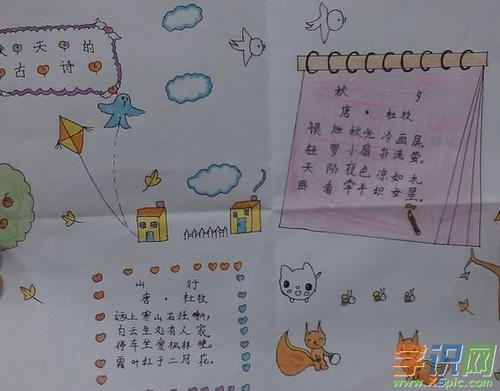 秋天的
古诗
秋 夕
唐·杜牧
银烛秋光冷画屏,
轻罗小扇扑流萤,
天阶夜色凉如水
卧看牵牛织女星。
山 行
唐·杜牧
远上寒山石径斜,
白云生处有人家
停车坐爱枫林晚
霜叶红于二月花。
学识网
www.x5pic.com